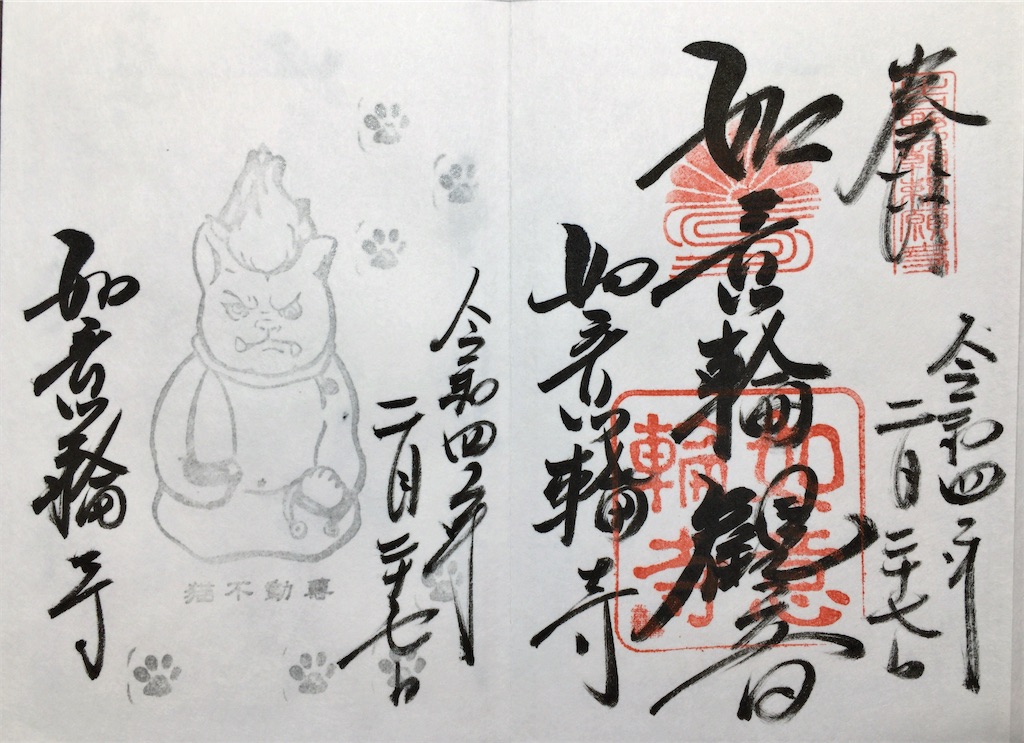 奉拝
令和四年
二月二十七日
如意輪観音
如意輪寺
如意輪寺
令和四年
二月二十七日
猫不動尊
如意輪寺